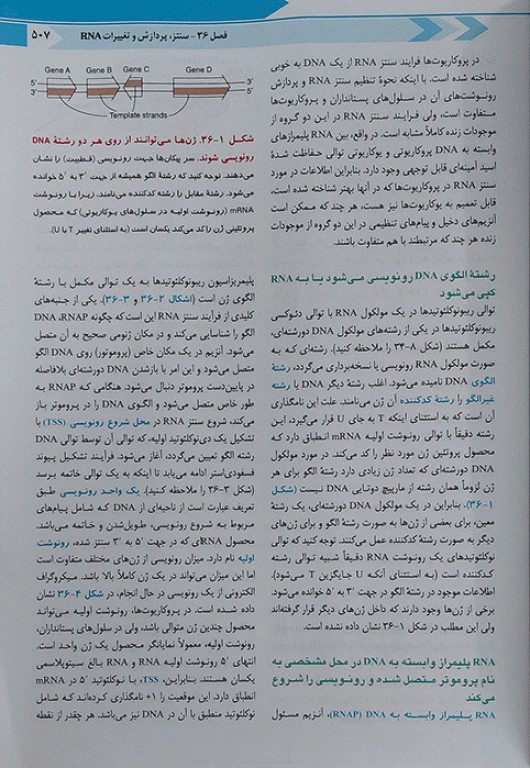 فصل ۳۶ - سنتز، پردازش و تغییرات RNA
۵۰۷
در پروکاریوت‌ها فرایند سنتز RNA از یک DNA به خوبی
شناخته شده است. با اینکه نحوهٔ تنظیم سنتز RNA و پردازش
رونوشت‌های آن در سلول‌های پستانداران و پروکاریوت‌ها
متفاوت است، ولی فرایند سنتز RNA در این دو گروه از
موجودات زنده کاملاً مشابه است. در واقع، بین RNA پلیمرازهای
وابسته به DNA پروکاریوتی و یوکاریوتی توالی حفاظت شدهٔ
اسید آمینه‌ای قابل توجهی وجود دارد. بنابراین اطلاعات در مورد
سنتز RNA در پروکاریوت‌ها که در آنها بهتر شناخته شده است،
قابل تعمیم به یوکاریوت‌ها نیز هست، هر چند که ممکن است
آنزیم‌های دخیل و پیام‌های تنظیمی در این دو گروه از موجودات
زنده هر چند که مرتبطند با هم متفاوت باشند.
رشتهٔ الگوی DNA رونویسی می‌شود یا به RNA
کپی می‌شود
توالی ریبونوکلئوتیدها در یک مولکول RNA با توالی دئوکسی
ریبونوکلئوتیدها در یکی از رشته‌های مولکول DNA دورشته‌ای،
مکمل هستند (شکل ۸-۳۴ را ملاحظه کنید). رشته‌ای که به
صورت مولکول RNA رونویسی یا نسخه‌برداری می‌گردد، رشتهٔ
الگوی DNA نامیده می‌شود. اغلب رشتهٔ دیگر DNA یا رشته
غیرالگو را رشتهٔ کدکنندهٔ آن ژن می‌نامند. علت این نامگذاری
آن است که به استثنای اینکه T به جای U قرار می‌گیرد، این
رشته دقیقاً با توالی رونوشت اولیه mRNA انطباق دارد که
محصول پروتئین ژن مورد نظر را کد می‌کند. در مورد مولکول
DNA دورشته‌ای که تعداد ژن زیادی دارد رشتهٔ الگو برای هر
ژن لزوماً همان رشته از مارپیچ دوتایی DNA نیست (شکل
۱-۳۶). بنابراین در یک مولکول DNA دورشته‌ای، یک رشتهٔ
معین، برای بعضی از ژن‌ها به صورت رشتهٔ الگو و برای ژن‌های
دیگر به صورت رشتهٔ کدکننده عمل می‌کنند. توجه کنید که توالی
نوکلئوتیدهای یک رونوشت RNA دقیقاً شبیه توالی رشته
کدکننده است (به استثنای آنکه U جایگزین T می‌شود).
اطلاعات موجود در رشتهٔ الگو در جهت ′۳ به ′۵ خوانده می‌شود.
برخی از ژن‌ها وجود دارند که داخل ژن‌های دیگر قرار گرفته‌اند
ولی این مطلب در شکل ۱-۳۶ نشان داده نشده است.
RNA پلیمراز وابسته به DNA در محل مشخصی به
نام پروموتر متصل شده و رونویسی را شروع
می‌کند
RNA پلیمراز وابسته به DNA (RNAP)، آنزیم مسئول
Gene A Gene B Gene C Gene D
5′ 3′
3′ 5′
Template strands
شکل ۱-۳۶. ژن‌ها می‌توانند از روی هر دو رشتهٔ DNA
رونویسی شوند. سر پیکان‌ها جهت رونویسی (قطبیت) را نشان
می‌دهند. توجه کنید که رشتهٔ الگو همیشه از جهت ′۳ به ′۵ خوانده
می‌شود. رشتهٔ مقابل را رشته کدکننده می‌نامند. زیرا با رونوشت
mRNA (رونوشت اولیه در سلول‌های یوکاریوتی) که محصول
پروتئینی ژن را کد می‌کند یکسان است (به استثنای تغییر T با U).
پلیمریزاسیون ریبونوکلئوتیدها به یک توالی مکمل با رشتهٔ
الگوی ژن است (اشکال ۲-۳۶ و ۳-۳۶). یکی از جنبه‌های
کلیدی از فرآیند سنتز RNA این است که چگونه RNAP، DNA
الگو را شناسایی می‌کند و در مکان ژنومی صحیح به آن متصل
می‌شود. آنزیم در یک مکان خاص (پروموتور) روی DNA الگو
متصل می‌شود و این امر با بازشدن DNA دورشته‌ای بلافاصله
در پایین‌دست پروموتر دنبال می‌شود. هنگامی که RNAP به
طور خاص متصل می‌شود و الگوی DNA را در پروموتر باز
می‌کند، شروع سنتز RNA در محل شروع رونویسی (TSS) با
تشکیل یک دی‌نوکلئوتید اولیه، که توالی آن توسط توالی DNA
رشته الگو تعیین می‌گردد، آغاز می‌شود. فرآیند تشکیل پیوند
فسفودی‌استر ادامه می‌یابد تا اینکه به یک توالی خاتمه برسد
(شکل ۳-۳۶ را ملاحظه کنید). یک واحد رونویسی طبق
تعریف عبارت است از ناحیه‌ای از DNA که شامل پیام‌های
مربوط به شروع رونویسی، طویل‌شدن و خاتمه می‌باشد.
محصول RNAی که در جهت ′۵ به ′۳ سنتز شده، رونوشت
اولیه نام دارد. میزان رونویسی از ژن‌های مختلف متفاوت است
اما این میزان می‌تواند در یک ژن کاملاً بالا باشد. میکروگراف
الکترونی از یک رونویسی در حال انجام، در شکل ۴-۳۶ نشان
داده شده است. در پروکاریوت‌ها، رونوشت اولیه می‌تواند
محصول چندین ژن متوالی باشد، ولی در سلول‌های پستانداران،
رونوشت اولیه، معمولاً نمایانگر محصول یک ژن واحد است.
انتهای ′۵ رونوشت اولیهٔ RNA و RNA بالغ سیتوپلاسمی
یکسان هستند. بنابراین، TSS، با نوکلئوتید ′۵ در mRNA
انطباق دارد. این موقعیت را ۱+ نامگذاری کرده‌اند که شامل
نوکلئوتید منطبق با آن در DNA نیز می‌باشد. هر چقدر از نقطه